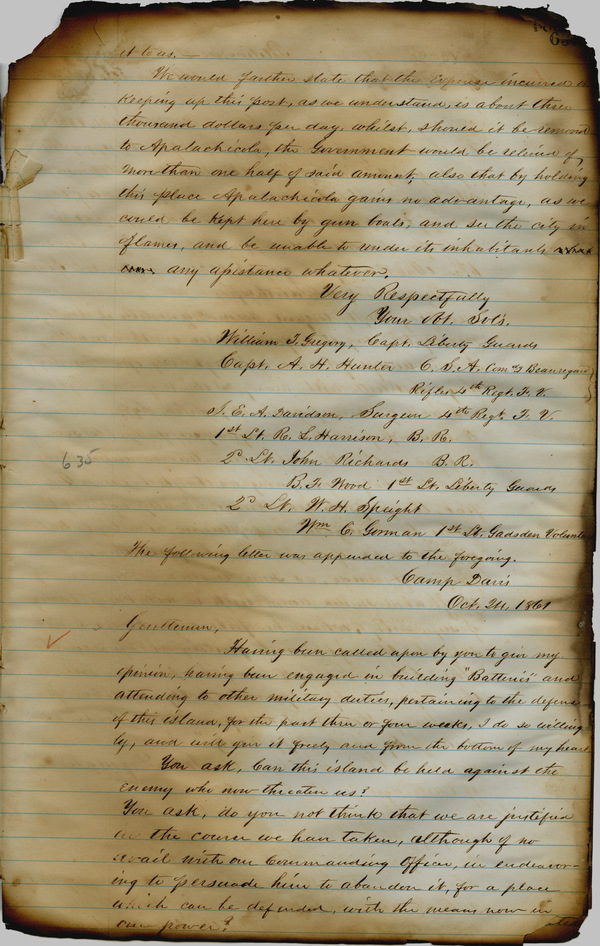 it to us.—
We would further state that the Expense incurred in
Keeping up this post, as we understand, is about three
thousand dollars per day, whilst, should it be removed
to Apalachicola, the Government would be relieved of,
more than one half of said amount, also that by holding
this place Apalachicola gains no advantage, as we
could be kept here by gun boats, and see the city in
flames, and be unable to render its inhabitants
any assistance whatever.
Very Respectfully
Your Ob. Svts.
William T. Gregory, Capt. Liberty Guards
Capt. A. H. Hunter C. S. A. Comg Beauregard
Rifles 4th Regt. F. V.
E. A. Davidson, Surgeon 4th Regt. F. V.
1st Lt. R. L. Harrison, B. R.
635
2d Lt. John Richards B. R.
B. F. Wood 1st Lt. Liberty Guards
2d Lt. W. H. Speight
Wm C. Gorman 1st Lt. Gadsden Volunte
The following letter was appended to the foregoing.
Camp Davis
Oct. 24, 1861
Gentlemen,
Having been called upon by you to give my
opinion, having been engaged in building "Batteries" and
attending to other military duties, pertaining to the defense
of this island, for the past three or four weeks, I do so willing-
ly, and will give it freely and from the bottom of my heart
You ask, Can this island be held against the
enemy who now threaten us?
You ask, do you not think that we are justified
in the course we have taken, although of no
avail with our Commanding Officer, in endeavor-
ing to persuade him to abandon it, for a place
which can be defended, with the means now in
our power?